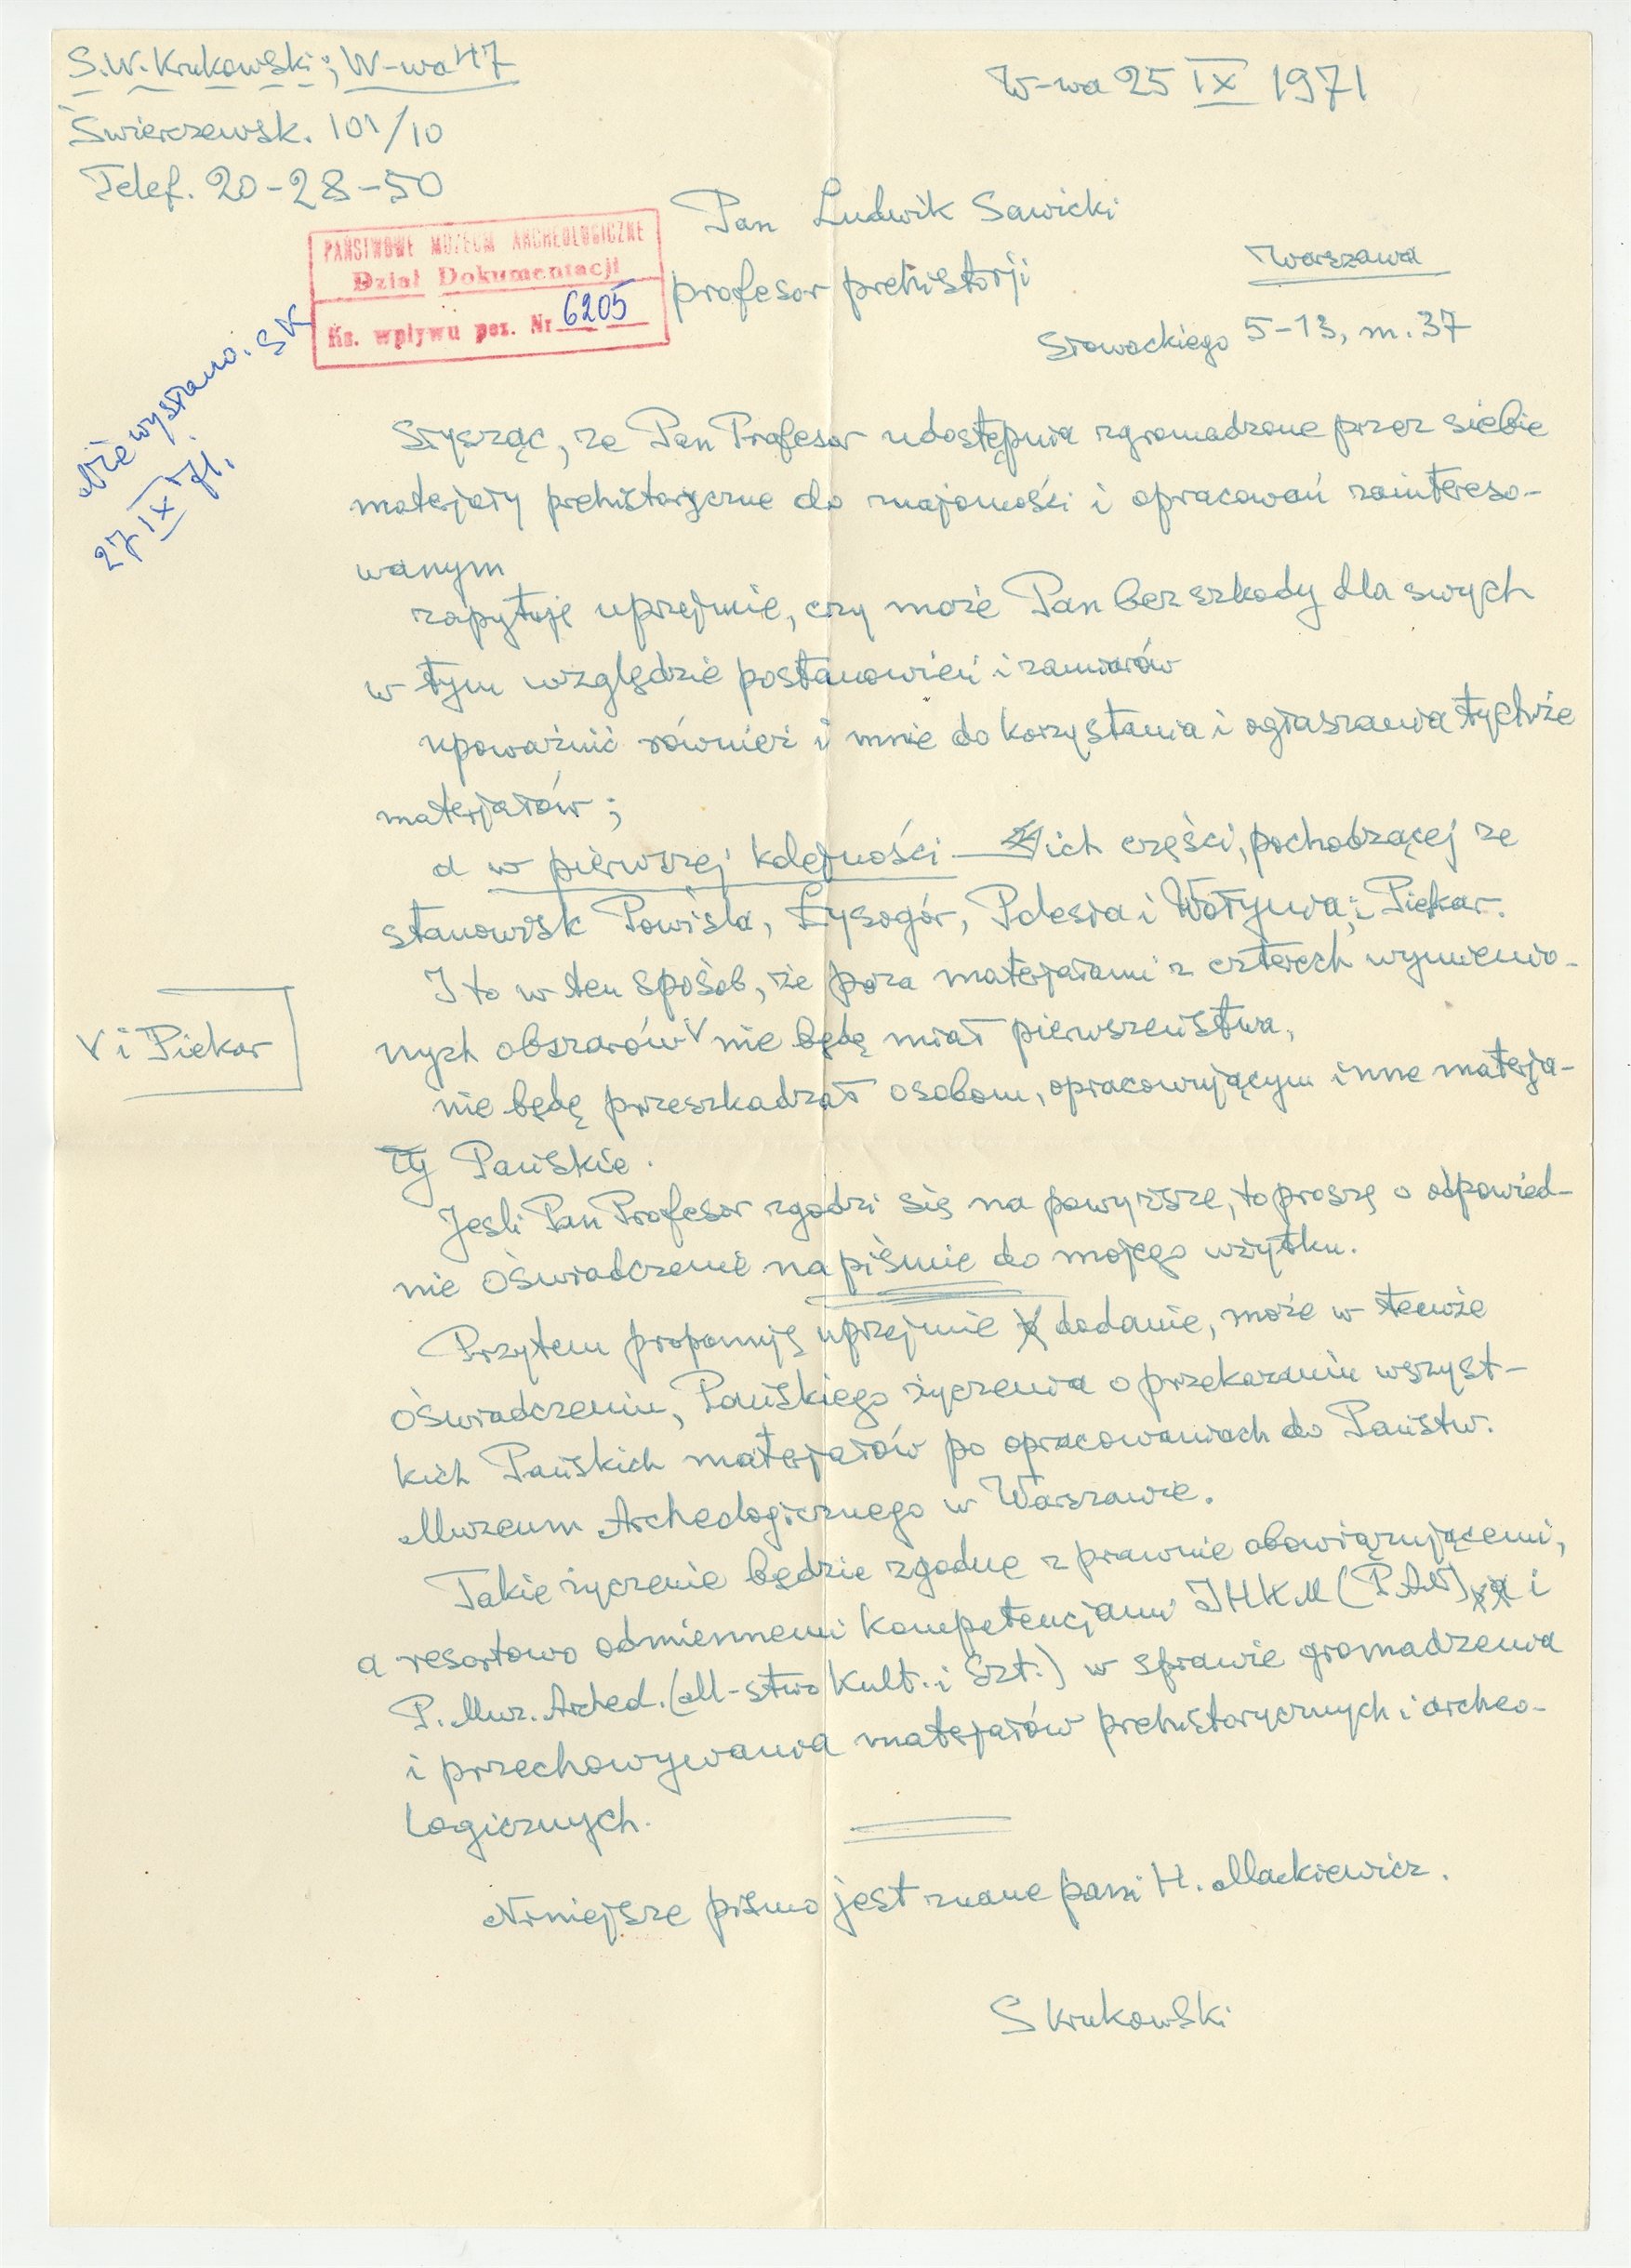 S.W. Krukowski; W-wa 47
Świerczewsk. 101/10
Telef. 20-28-50
W-wa 25 IX 1971
Pan Ludwik Sawicki
profesor prehistorji
Warszawa
Słowackiego 5-13, m. 37
PAŃSTWOWE MUZEUM ARCHEOLOGICZNE
Dział Dokumentacji
Ks. wpływu poz. Nr 6205
Nie wysłano. SK
27 IX 71.
Słysząc, że Pan Profesor udostępnia zgromadzone przez siebie
materjały prehistoryczne do znajomości i opracowań zaintereso-
wanym
zapytuję uprzejmie, czy może Pan bez szkody dla swych
w tym względzie postanowień i zamiarów
upoważnić również i mnie do korzystania i ogłaszania tychże
materjałów;
a w pierwszej kolejności – ich części, pochodzącej ze
stanowisk Powiśla, Łysogór, Polesia i Wołynia, i Piekar.
I to w ten sposób, że poza materjałami z czterech wymienio-
nych obszarów V nie będę miał pierwszeństwa,
V i Piekar
nie będę przeszkadzał osobom, opracowującym inne materja-
ły Pańskie.
Jesli Pan Profesor zgodzi się na powyższe, to proszę o odpowied-
nie oświadczenie na piśmie do mojego użytku.
Przytem proponuję uprzejmie dodanie, może w temże
oświadczeniu, Pańskiego życzenia o przekazaniu wszyst-
kich Pańskich materjałów po opracowaniach do Państw.
Muzeum Archeologicznego w Warszawie.
Takie życzenie będzie zgodne z prawnie obowiązującemi,
a resortowo odmiennemi kompetencjami IHKM (PAN) i
P. Muz. Archeol. (M-stwo Kult. i Szt.) w sprawie gromadzenia
i przechowywania materjałów prehistorycznych i archeo-
logicznych.
Niniejsze pismo jest znane pani H. Mackiewicz.
S Krukowski